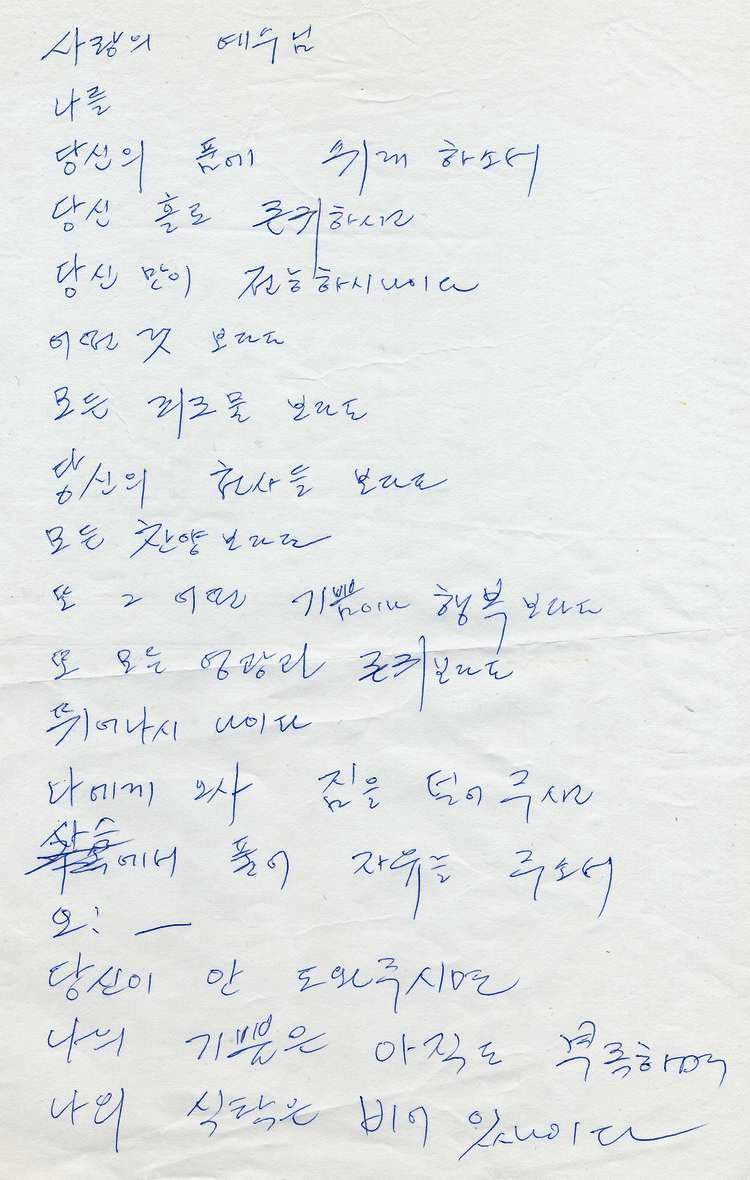 사랑의 예수님
나를
당신의 품에 쉬게 하소서
당신 홀로 존귀하시고
당신 만이 전능하시나이다
어떤 것 보다도
모든 피조물 보다도
당신의 천사들 보다도
모든 찬양보다도
또 그 어떤 기쁨이나 행복보다도
또 모든 영광과 존귀보다도
뛰어나시 나이다
나에게 오사 짐을 덜어 주시고
에서 풀어 자유를 주소서
오! —
당신이 안 도와주시면
나의 기쁨은 아직도 부족하며
나의 식탁은 비어 있나이다